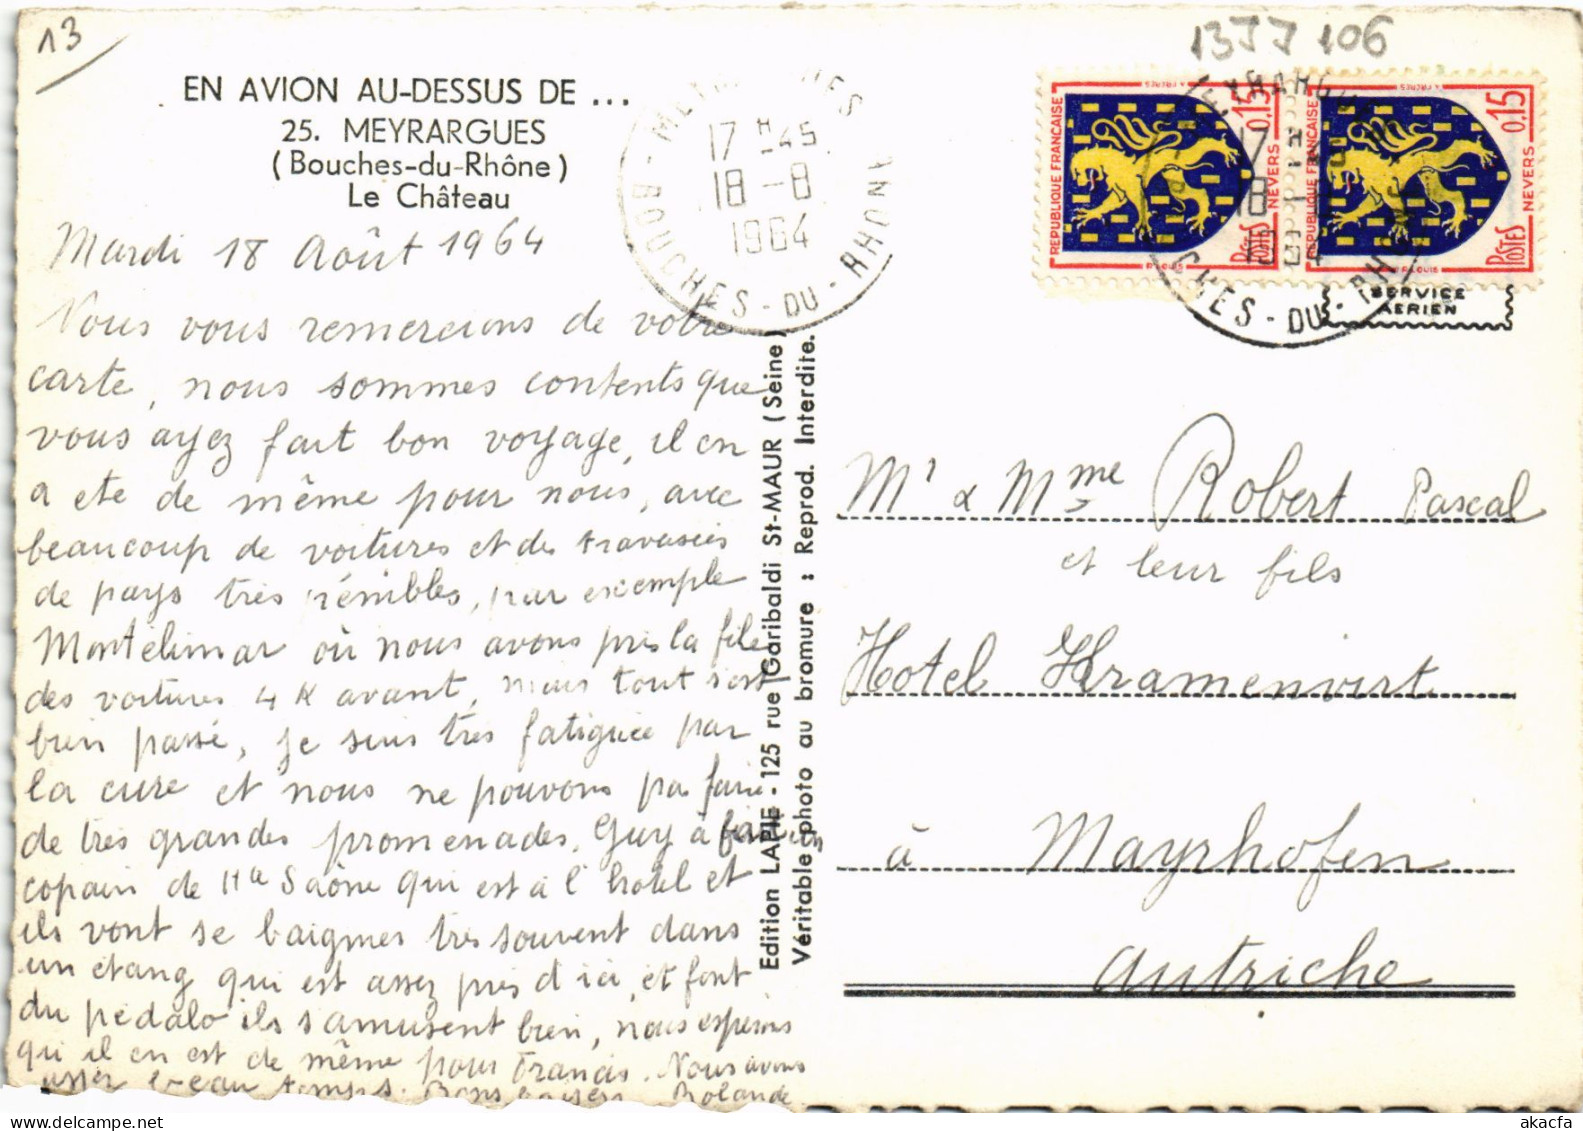 13
13JJ 106
EN AVION AU-DESSUS DE ...
25. MEYRARGUES
(Bouches-du-Rhône)
Le Château
17 H -45
18 -8
1964
BOUCHES - DU - RHONE
REPUBLIQUE FRANÇAISE
0,15
NEVERS
POSTES
REPUBLIQUE FRANÇAISE
0,15
NEVERS
POSTES
SERVICE
AERIEN
Mardi 18 Août 1964
Nous vous remercions de votre
carte, nous sommes contents que
vous ayez fait bon voyage, il en
a ete de même pour nous, avec
beaucoup de voitures et des traversées
de pays très pénibles, par exemple
Montélimar où nous avons pris la file
des voitures 4 K avant, mais tout s'est
bien passé, je suis très fatiguée par
la cure et nous ne pouvons pas faire
de très grandes promenades, Guy à
copain de Hte Saône qui est à l'hotel et
ils vont se baigner très souvent dans
un étang qui est assez près d'ici, et font
du pédalo ils s'amusent bien, nous espérons
qu'il en est de même pour Francis. Nous avons
assez beau temps. Bons baisers Rolande
Edition LAPIE - 125 rue Garibaldi St-MAUR (Seine)
Véritable photo au bromure : Reprod. Interdite.
Mr & Mme Robert Pascal
et leur fils
Hotel Kramenvirt
à Mayrhofen
Autriche
akacfa